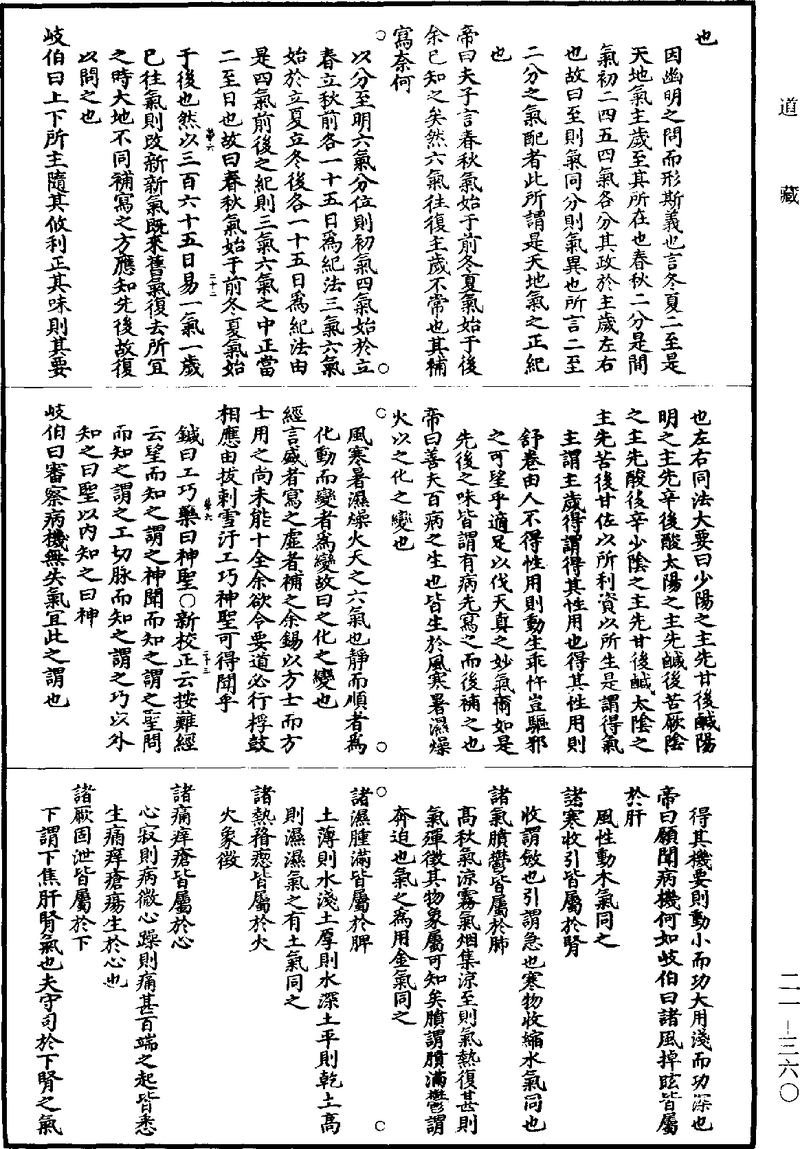 也
因幽明之問而形斯義也言冬夏二至是
天地氣主歲至其所在也春秋二分是間
氣初二四五四氣各分其政於主歲左右
也故曰至則氣同分則氣異也所言二至
二分之氣配者此所謂是天地氣之正紀
也
帝曰夫子言春秋氣始于前冬夏氣始于後
余已知之矣然六氣往復主歲不常也其補
寫奈何
以分至明六氣分位則初氣四氣始於立
春立秋前各一十五日爲紀法三氣六氣
始於立夏立冬後各一十五日爲紀法由
是四氣前後之紀則三氣六氣之中正當
二至日也故曰春秋氣始于前冬夏氣始
于後也然以三百六十五日易一氣一歲
已往氣則改新新氣既來舊氣復去所宜
之時大地不同補寫之方應知先後故復
以問之也
岐伯曰上下所主隨其攸利正其味則其要
也左右同法大要曰少陽之主先甘後鹹陽
明之主先辛後酸太陽之主先鹹後苦厥陰
之主先酸後辛少陰之主先甘後鹹太陰之
主先苦後甘佐以所利資以所生是謂得氣
主謂主歲得謂得其性用也得其性用則
舒卷由人不得性用則動生乖忤豈驅邪
之可望乎適足以伐天真之妙氣爾如是
先後之味皆謂有病先寫之而後補之也
帝曰善夫百病之生也皆生於風寒暑濕燥
火以之化之變也
風寒暑濕燥火天之六氣也靜而順者爲
化動而變者爲變故曰之化之變也
經言盛者寫之虛者補之余錫以方士而方
士用之尚未能十全余欲令要道必行桴鼓
相應由拔刺雪汙工巧神聖可得聞乎
鍼曰工巧藥曰神聖○新校正云按難經
云望而知之謂之神聞而知之謂之聖問
而知之謂之工切脉而知之謂之巧以外
知之曰聖以內知之曰神
岐伯曰審察病機無失氣宜此之謂也
得其機要則動小而功大用淺而功深也
帝曰願聞病機何如岐伯曰諸風掉眩皆屬
於肝
風性動木氣同之
諸寒收引皆屬於腎
收謂斂也引謂急也寒物收縮水氣同也
諸氣膹鬱皆屬於肺
高秋氣涼霧氣烟集涼至則氣熱復甚則
氣殫徵其物象屬可知矣膹謂膹滿鬱謂
奔迫也氣之爲用金氣同之
諸濕腫滿皆屬於脾
土薄則水淺土厚則水深土平則乾土高
則濕濕氣之有土氣同之
諸熱瞀瘛皆屬於火
火象徵
諸痛痒瘡皆屬於心
心寂則病微心躁則痛甚百端之起皆悉
生痛痒瘡瘍生於心也
諸厥固泄皆屬於下
下謂下焦肝腎氣也夫守司於下腎之氣
道藏
二一－三六〇